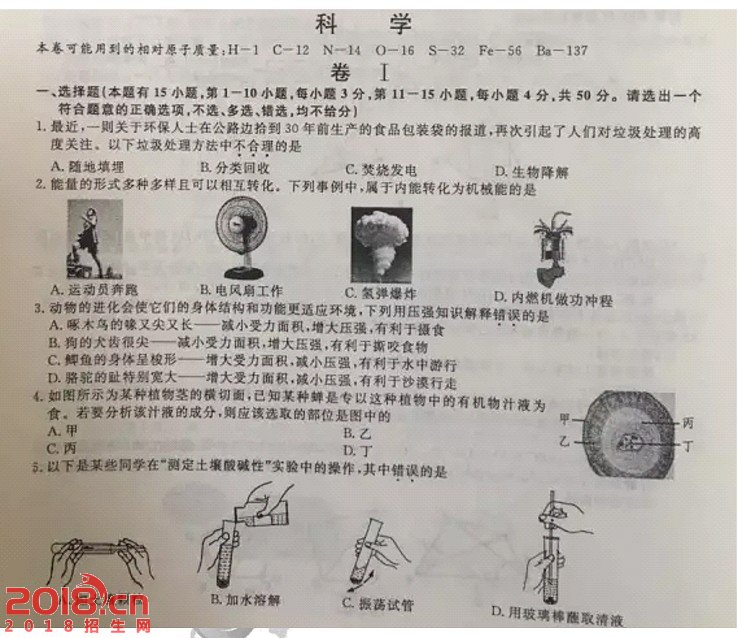 科 学
本卷可能用到的相对原子质量:H-1 C-12 N-14 O-16 S-32 Fe-56 Ba-137
卷 Ⅰ
一、选择题(本题有 15 小题,第 1-10 小题,每小题 3 分,第 11-15 小题,每小题 4 分,共 50 分。请选出一个
符合题意的正确选项,不选、多选、错选,均不给分)
1. 最近,一则关于环保人士在公路边拾到 30 年前生产的食品包装袋的报道,再次引起了人们对垃圾处理的高
度关注。以下垃圾处理方法中不合理的是
A. 随地填埋 B. 分类回收 C. 焚烧发电 D. 生物降解
2. 能量的形式多种多样且可以相互转化。下列事例中,属于内能转化为机械能的是
A. 运动员奔跑 B. 电风扇工作 C. 氢弹爆炸 D. 内燃机做功冲程
3. 动物的进化会使它们的身体结构和功能更适应环境,下列用压强知识解释错误的是
A. 啄木鸟的喙又尖又长——减小受力面积,增大压强,有利于摄食
B. 狗的犬齿很尖——减小受力面积,增大压强,有利于撕咬食物
C. 鲫鱼的身体呈梭形——增大受力面积,减小压强,有利于水中游行
D. 骆驼的趾特别宽大——增大受力面积,减小压强,有利于沙漠行走
4. 如图所示为某种植物茎的横切面,已知某种蝉是专以这种植物中的有机物汁液为
食。若要分析该汁液的成分,则应该选取的部位是图中的
A. 甲 B. 乙
C. 丙 D. 丁
甲 丙
乙 丁
5. 以下是某些同学在“测定土壤酸碱性”实验中的操作,其中错误的是
B. 加水溶解 C. 振荡试管 D. 用玻璃棒蘸取清液
2018.cn
2018招生网